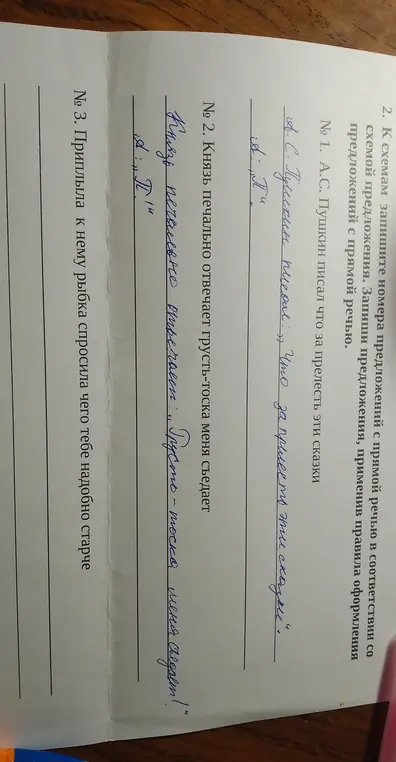 2. К схемам запишите номера предложений с прямой речью в соответствии со
схемой предложения. Запиши предложения, применив правила оформления
предложений с прямой речью.
№ 1. А.С. Пушкин писал что за прелесть эти сказки
А. С. Пушкин писал: „Что за прелесть эти сказки".
А: „П".
№ 2. Князь печально отвечает грусть-тоска меня съедает
Князь печально отвечает: „Грусть-тоска меня съедает!"
А: „П!"
№ 3. Приплыла к нему рыбка спросила чего тебе надобно старче